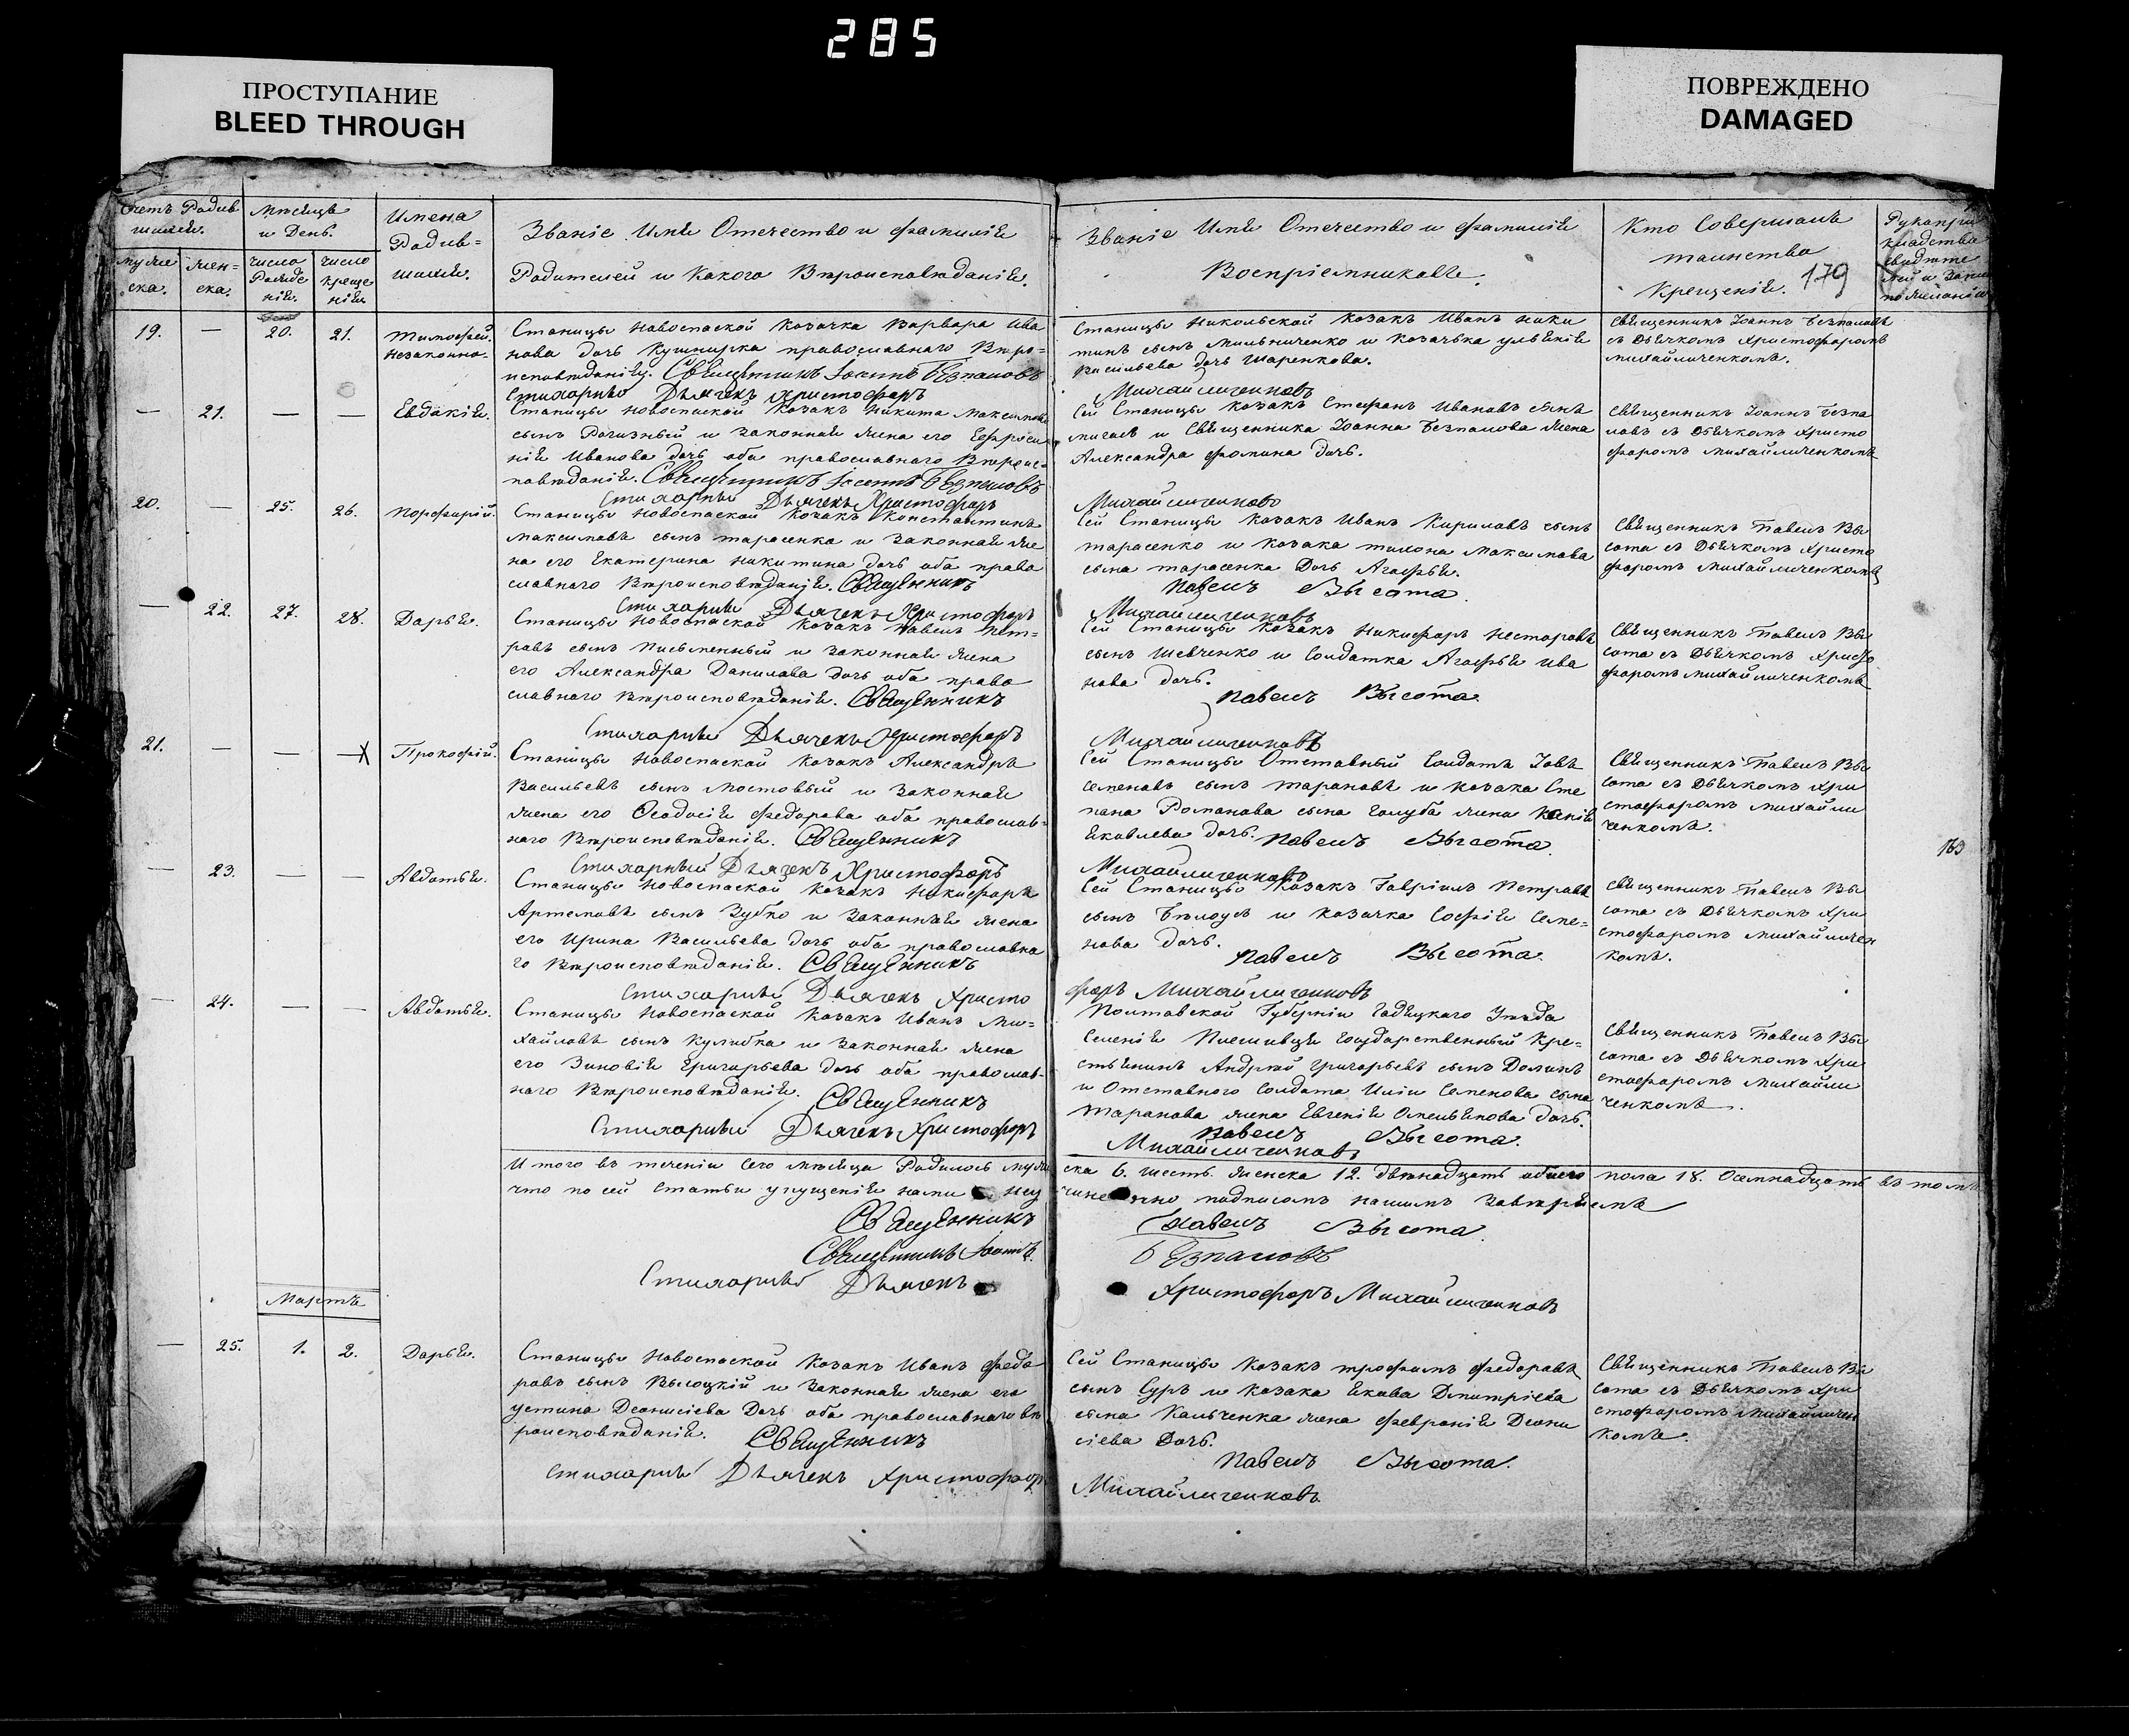 285
ПРОСТУПАНИЕ
BLEED THROUGH
ПОВРЕЖДЕНО
DAMAGED
Счетъ Родив
шихся.
муже
ска.
жен-
ска.
Мѣсяцъ
и День.
число
Рожде
нія.
число
креще
нія.
Имена
Родив=
шихся.
Званіе Имя Отечество и фамилія
Родителей и какого Вѣроисповѣданія.
Званіе Имя Отечество и фамилія
Воспріемниковъ.
Кто Совершалъ
таинство
Крещенія. 179
Рукопри
кладство
свидѣте
лей
19. — 20. 21. Тимофей.
незаконно.
Станицы Новоспаской козачка Варвара Ива
нова дочь Кушнирка православнаго Вѣро=
исповѣданія. Священникъ Іоаннъ Безпаловъ
Стихарный Дьячекъ Христофоръ
Станицы Никольской козакъ Иванъ Ники
тинъ сынъ Мильниченко и козачька Ульянія
Васильева дочь Шаренкова.
Михайличенковъ
Священникъ Іоаннъ Безпаловъ
съ Дьячкомъ Христофоромъ
Михайличенкомъ.
— 21. — — Евдокія.
Станицы Новоспаской козакъ Никита Максимовъ
сынъ Рогизный и законная жена его Ефроси
нія Иванова дочь оба православнаго Вѣроис=
повѣданія. Священникъ Іоаннъ Безпаловъ
Стихарный Дьячекъ Христофоръ
Сей Станицы козакъ Стефанъ Ивановъ сынъ
и Священника Іоанна Безпалова жена
Александра Фомина дочь.
Михайличенковъ
Священникъ Іоаннъ Безпа
ловъ съ Дьячкомъ Христо
форомъ Михайличенкомъ
20. — 25. 26. Порфирій.
Станицы Новоспаской козакъ Константинъ
Максимовъ сынъ Тарасенко и законная же
на его Екатерина Никитина дочь оба право
славнаго Вѣроисповѣданія. Священникъ
Стихарный Дьячекъ Христофоръ
Сей Станицы козакъ Иванъ Кириловъ сынъ
Тарасенко и козака Тихона Максимова
сына Тарасенка Дочь Агафья.
Павелъ Высота.
Михайличенковъ
Священникъ Павелъ Вы
сота съ Дьячкомъ Христо
форомъ Михайличенкомъ
— 22. 27. 28. Дарья.
Станицы Новоспаской козакъ Павелъ Пет=
ровъ сынъ Письменный и законная жена
его Александра Данилова дочь оба право
славнаго Вѣроисповѣданія. Священникъ
Стихарный Дьячекъ Христофоръ
Сей Станицы козакъ Никифоръ Несторовъ
сынъ Шевченко и Солдатка Агафья Ива
нова дочь.
Павелъ Высота.
Михайличенковъ
Священникъ Павелъ Вы
сота съ Дьячкомъ Христо
форомъ Михайличенкомъ
21. — — — Х Прокофій.
Станицы Новоспаской козакъ Александръ
Васильевъ сынъ Мостовый и законная
жена его Феодосія Федорова оба православ=
наго Вѣроисповѣданія. Священникъ
Стихарный Дьячекъ Христофоръ
Сей Станицы Отставный Солдатъ Іовъ
Семеновъ сынъ Тарановъ и козака Сте
пана Романова сына Голуба жена Ксенія
Яковлева дочь. Павелъ Высота.
Михайличенковъ
Священникъ Павелъ Вы
сота съ Дьячкомъ Хри
стофоромъ Михайли
ченкомъ.
163
— 23. — — Авдотья.
Станицы Новоспаской козакъ Никифоръ
Артемовъ сынъ Зубко и законная жена
его Ирина Васильева дочь оба православна
го Вѣроисповѣданія. Священникъ
Стихарный Дьячекъ Христо
Сей Станицы козакъ Гавріилъ Петровъ
сынъ Бѣлоусъ и козачка Софія Семе=
нова дочь.
Павелъ Высота
форъ Михайличенковъ
Священникъ Павелъ Вы
сота съ Дьячкомъ Хри
стофоромъ Михайличен
комъ.
— 24. — — Авдотья.
Станицы Новоспаской козакъ Иванъ Ми=
хайловъ сынъ Кулибка и законная жена
его Зиновія Григорьева дочь оба православ=
наго Вѣроисповѣданія. Священникъ
Стихарный Дьячекъ Христофоръ
Полтавской Губерніи Гадяцкаго Уѣзда
Селенія государственный Кре=
стьянинъ Андрей Григорьевъ сынъ
и Отставного Солдата Иліи Семенова сына
Таранова жена Евгенія Омельянова дочь.
Павелъ Высота.
Михайличенковъ
Священникъ Павелъ Вы
сота съ Дьячкомъ Хри
стофоромъ Михайли
ченкомъ.
Итого въ теченіи сего мѣсяца Родилось муже ска 6. шесть. женска 12. двѣнадцать обоего пола 18. Осемнадцать въ томъ
что по сей статьи упущенія нами не учинено подписомъ нашимъ завѣряемъ
Священникъ Павелъ Высота.
Священникъ Іоаннъ Безпаловъ
Стихарный Дьячекъ Христофоръ Михайличенковъ
Мартъ
— 25. 1. 2. Дарья.
Станицы Новоспаской козакъ Иванъ Федо
ровъ сынъ Вылоцкій и законная жена его
Устина Деонисіева Дочь оба православнаго вѣ
роисповѣданія. Священникъ
Стихарный Дьячекъ Христофор
Сей Станицы козакъ Трофимъ Федоровъ
сынъ Суръ и козака Якова Дмитріева
сына Кальченка жена Февронія Деони
сіева Дочь.
Павелъ Высота.
Михайличенковъ.
Священникъ Павелъ Вы
сота съ Дьячкомъ Хри
стофоромъ Михайличен
комъ.